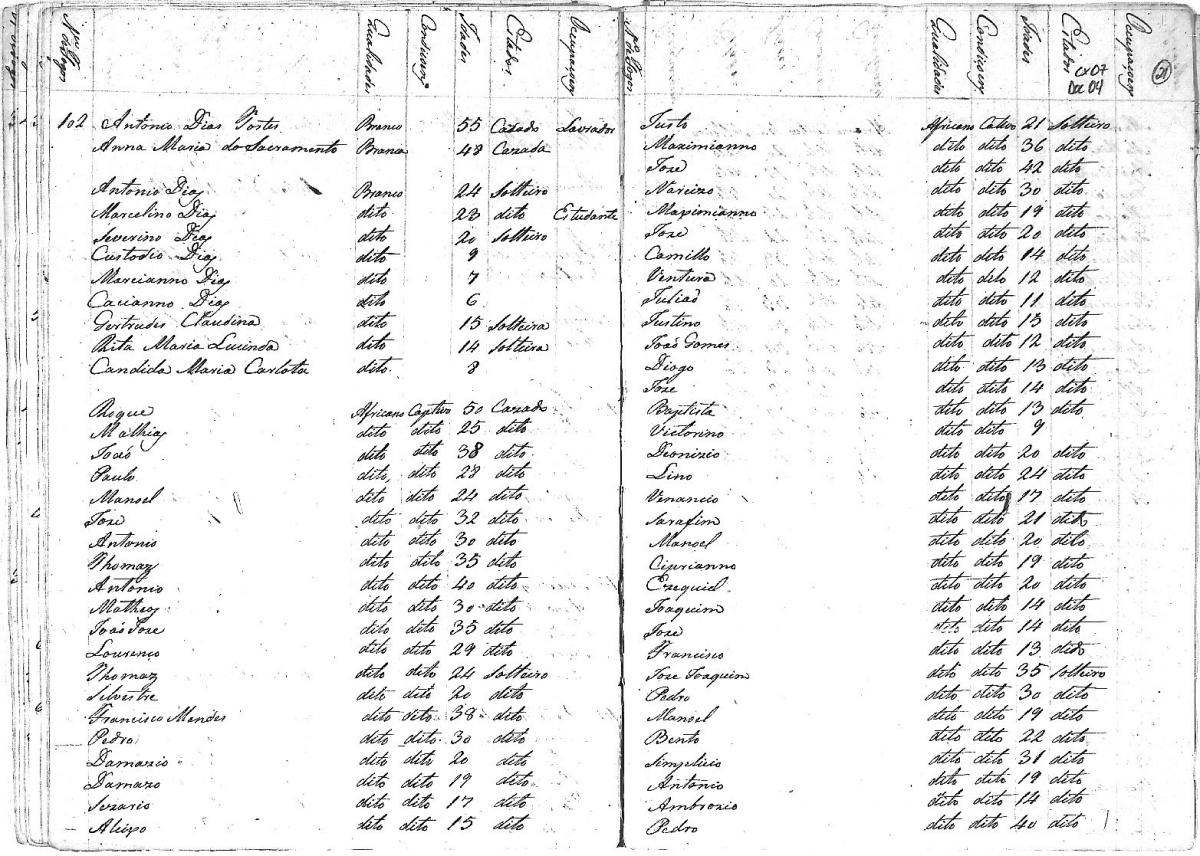 Nos. de Fogos Qualidades Condiçoens Idades Estados Occupaçoens
102 Antonio Dias Fortes Branco 55 Cazado Lavrador
Anna Maria do Sacramento Branca 48 Cazada
Antonio Dias Branco 24 Solteiro
Marcelino Dias dito 23 dito Estudante
Severino Dias dito 20 Solteiro
Custodio Dias dito 9
Marcianno Dias dito 7
Cacianno Dias dito 6
Gertrudes Claudina dito 15 Solteira
Rita Maria Lucinda dito 14 Solteira
Candida Maria Carlota dito 8
Roque Africano Captivo 50 Cazado
Mathias dito dito 25 dito
João dito dito 38 dito
Paulo dito dito 28 dito
Manoel dito dito 24 dito
Joze dito dito 32 dito
Antonio dito dito 30 dito
Thomaz dito dito 35 dito
Antonio dito dito 40 dito
Matheos dito dito 30 dito
João Joze dito dito 35 dito
Lourenço dito dito 29 dito
Thomaz dito dito 24 Solteiro
Silvestre dito dito 20 dito
Francisco Mendes dito dito 38 dito
Pedro dito dito 30 dito
Damazio dito dito 20 dito
Damazo dito dito 19 dito
Sezario dito dito 17 dito
Alipo dito dito 15 dito
Nos. de Fogos Qualidades Condiçoens Idades Estados Occupaçoens
21
Cx 07
Doc 04
Justo Africano Cativo 21 Solteiro
Maximianno dito dito 36 dito
Joze dito dito 42 dito
Narcizo dito dito 30 dito
Maximianno dito dito 19 dito
Joze dito dito 20 dito
Camillo dito dito 14 dito
Ventura dito dito 12 dito
Julião dito dito 11 dito
Justino dito dito 13 dito
João Gomes dito dito 12 dito
Diogo dito dito 13 dito
Joze dito dito 14 dito
Baptista dito dito 13 dito
Victorino dito dito 9
Deonizio dito dito 20 dito
Lino dito dito 24 dito
Venancio dito dito 17 dito
Sarafim dito dito 21 dito
Manoel dito dito 20 dito
Ciprianno dito dito 19 dito
Ezequiel dito dito 20 dito
Joaquim dito dito 14 dito
Joze dito dito 14 dito
Francisco dito dito 13 dito
Joze Joaquim dito dito 35 Solteiro
Pedro dito dito 30 dito
Manoel dito dito 19 dito
Bento dito dito 22 dito
Simplicio dito dito 31 dito
Antonio dito dito 19 dito
Ambrozio dito dito 14 dito
Pedro dito dito 40 dito